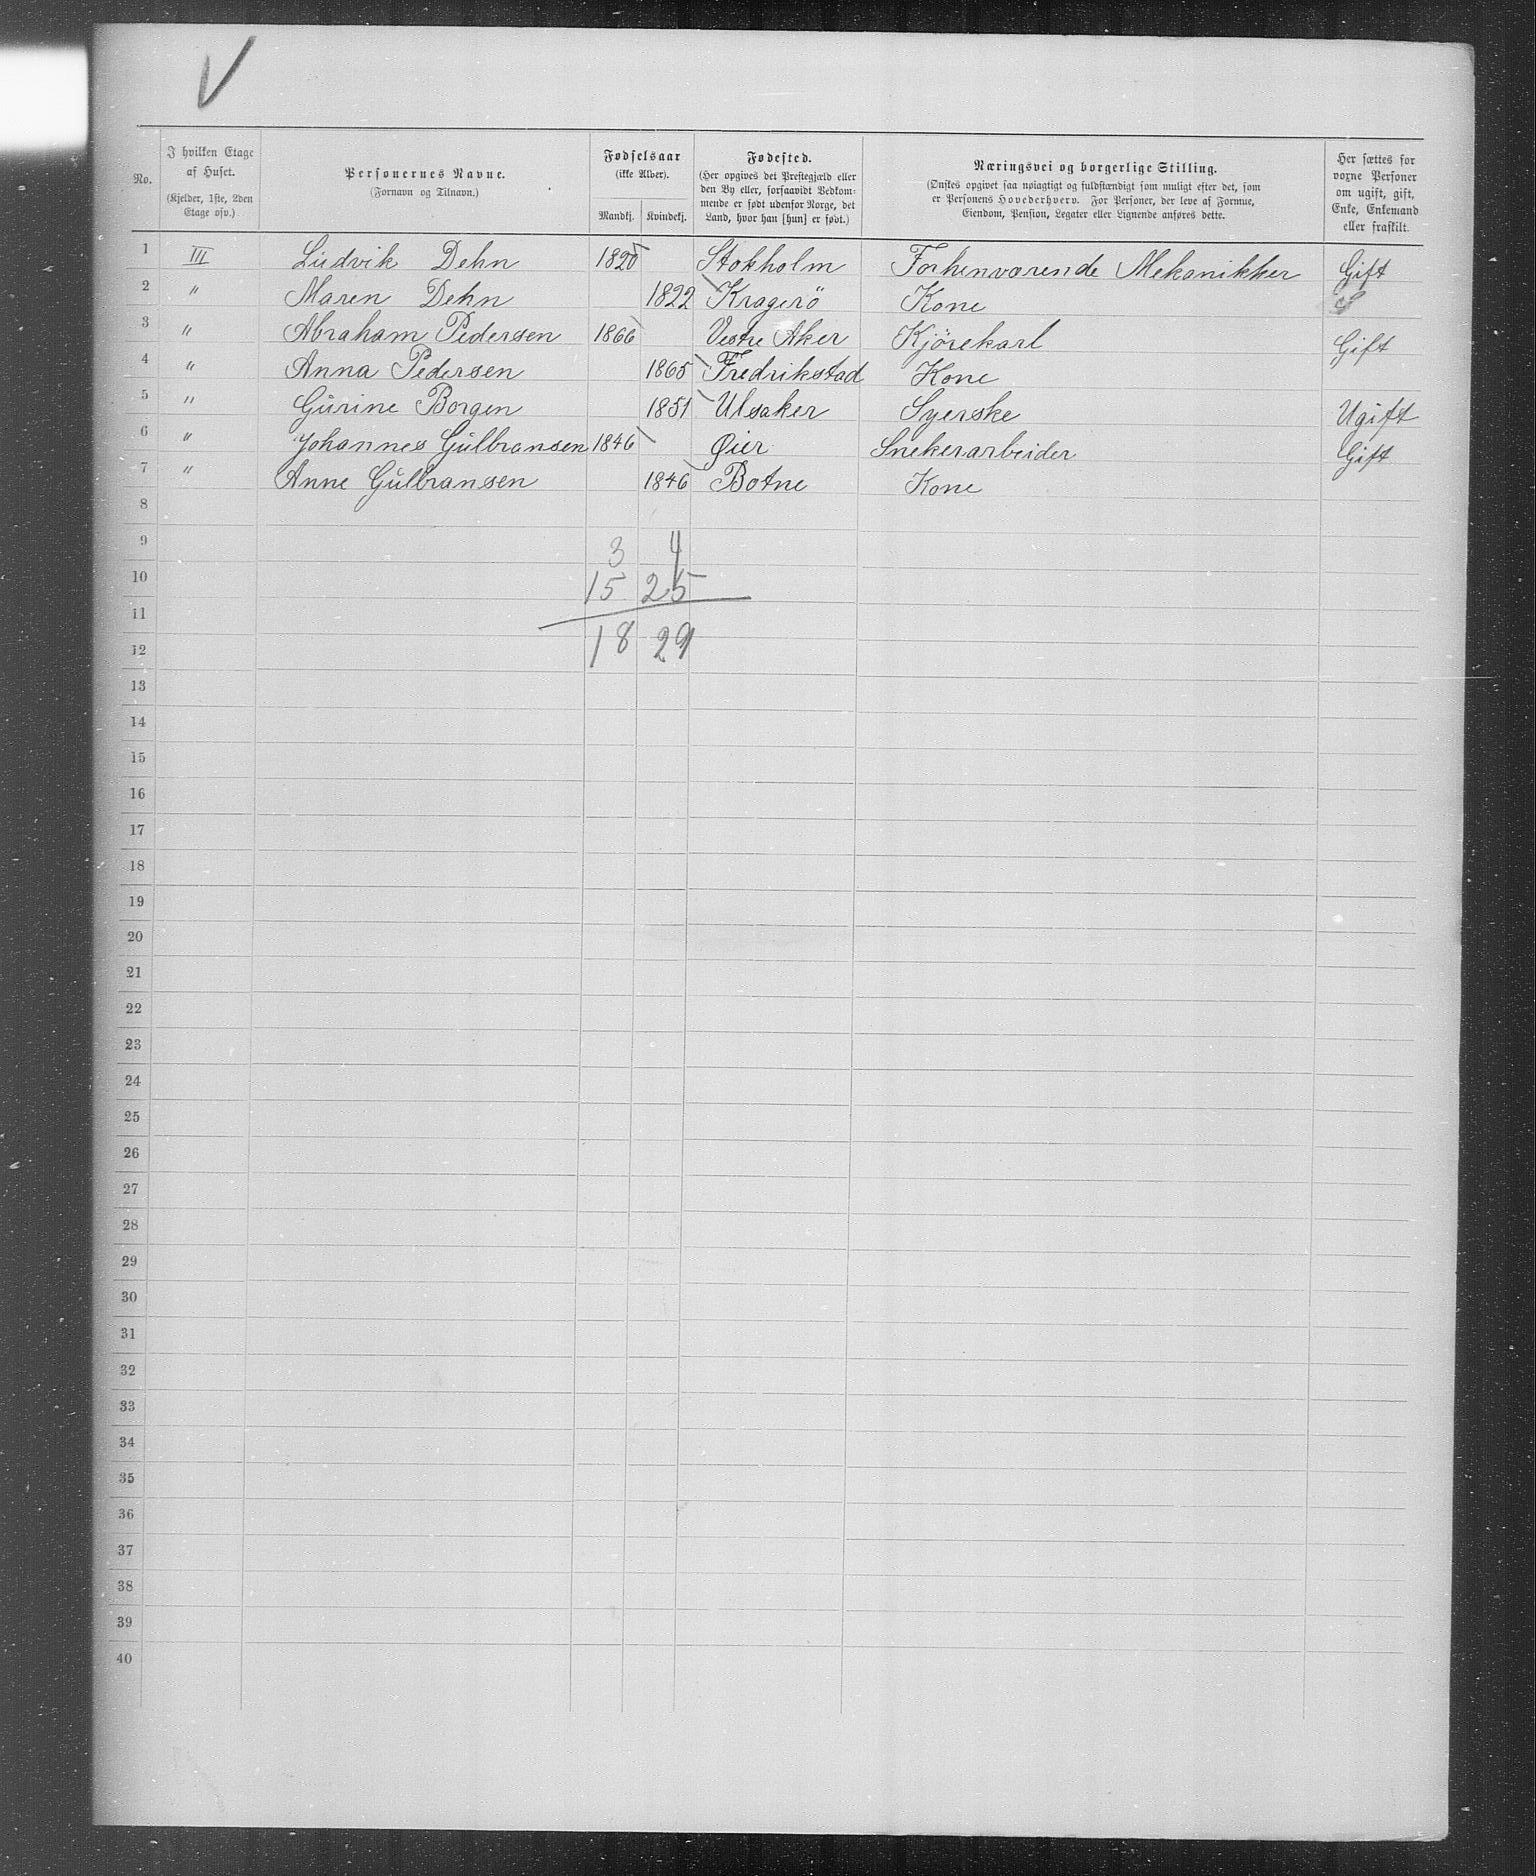 V
No.
I hvilken Etage af Huset. (Kjelder, 1ste, 2den Etage osv.)
Personernes Navne. (Fornavn og Tilnavn.)
Fødselsaar (ikke Alder). Mandkj. Kvindekj.
Fødested. (Her opgives det Prestegjæld eller den By eller, forsaavidt Vedkommende er født udenfor Norge, det Land, hvor han [hun] er født.)
Næringsvei og borgerlige Stilling. (Ønskes opgivet saa nøiagtigt og fuldstændigt som muligt efter det, som er Personens Hovederhverv. For Personer, der leve af Formue, Eiendom, Pension, Legater eller Lignende anføres dette.)
Her sættes for vorne Personer om ugift, gift, Enke, Enkemand eller fraskilt.
1 III Ludvik Dehn 1820 Stokholm Forhenværende Mekanikker Gift
2 " Maren Dehn 1822 Kragerö Kone
3 " Abraham Pedersen 1866 Vestre Aker Kjörekarl Gift
4 " Anna Pedersen 1865 Fredrikstad Kone
5 " Gurine Borgen 1851 Ulsaker Syerske Ugift
6 " Johannes Gulbransen 1846 Øier Snekerarbeider Gift
7 " Anne Gulbransen 1846 Botne Kone
8
9 3 4
10 15 25
11
12 18 29
13
14
15
16
17
18
19
20
21
22
23
24
25
26
27
28
29
30
31
32
33
34
35
36
37
38
39
40